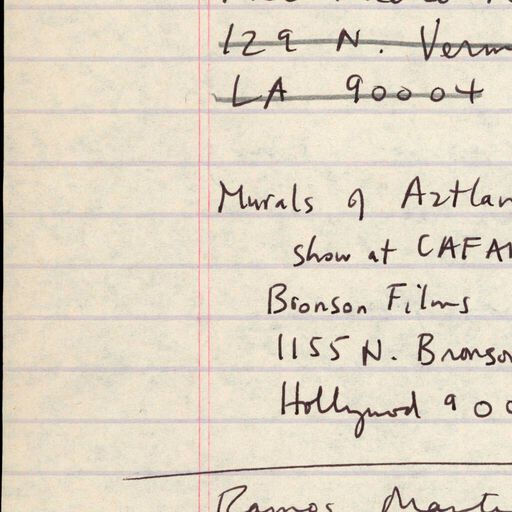 129 N. Verm
LA 90004
Murals of Aztlan
show at CAFAM
Bronson Films
1155 N. Bronson
Hollywood 900
Ramos Mart